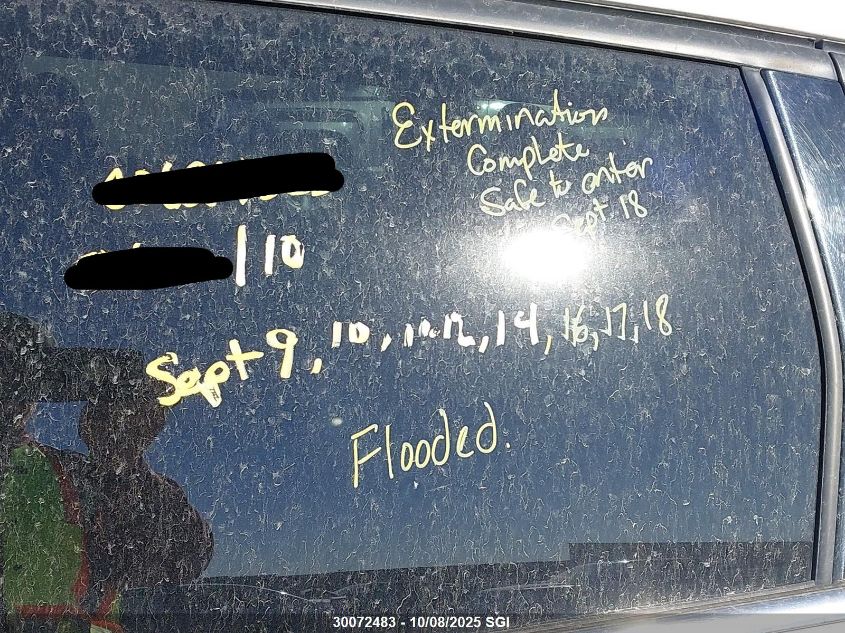 Extermination
Complete
Safe to enter
Sept 18
/10
Sept 9, 10, 11, 12, 14, 16, 17, 18
Flooded.
30072483 - 10/08/2025 SGI